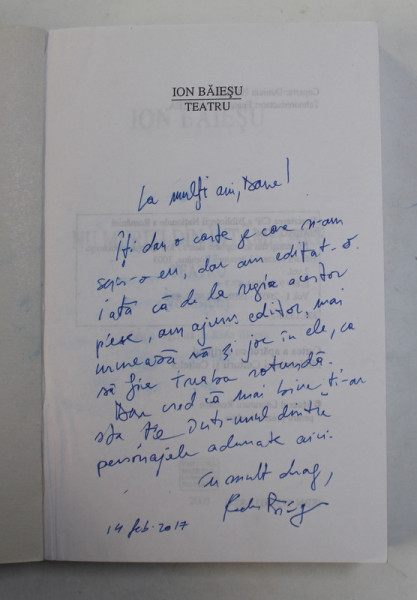 ION BĂIEȘU
TEATRU
La mulți ani, Dane!
Îți dau o carte pe care n-am
scris-o eu, dar am editat-o.
iată că de la regia acestor
piese, am ajuns editor, mai
urmează să și joc în ele, ca
să fie treaba rotundă.
Dar cred că mai bine ți-ar
sta ție într-unul dintre
personajele adunate aici.
Cu mult drag,
Radu
14 feb. 2017